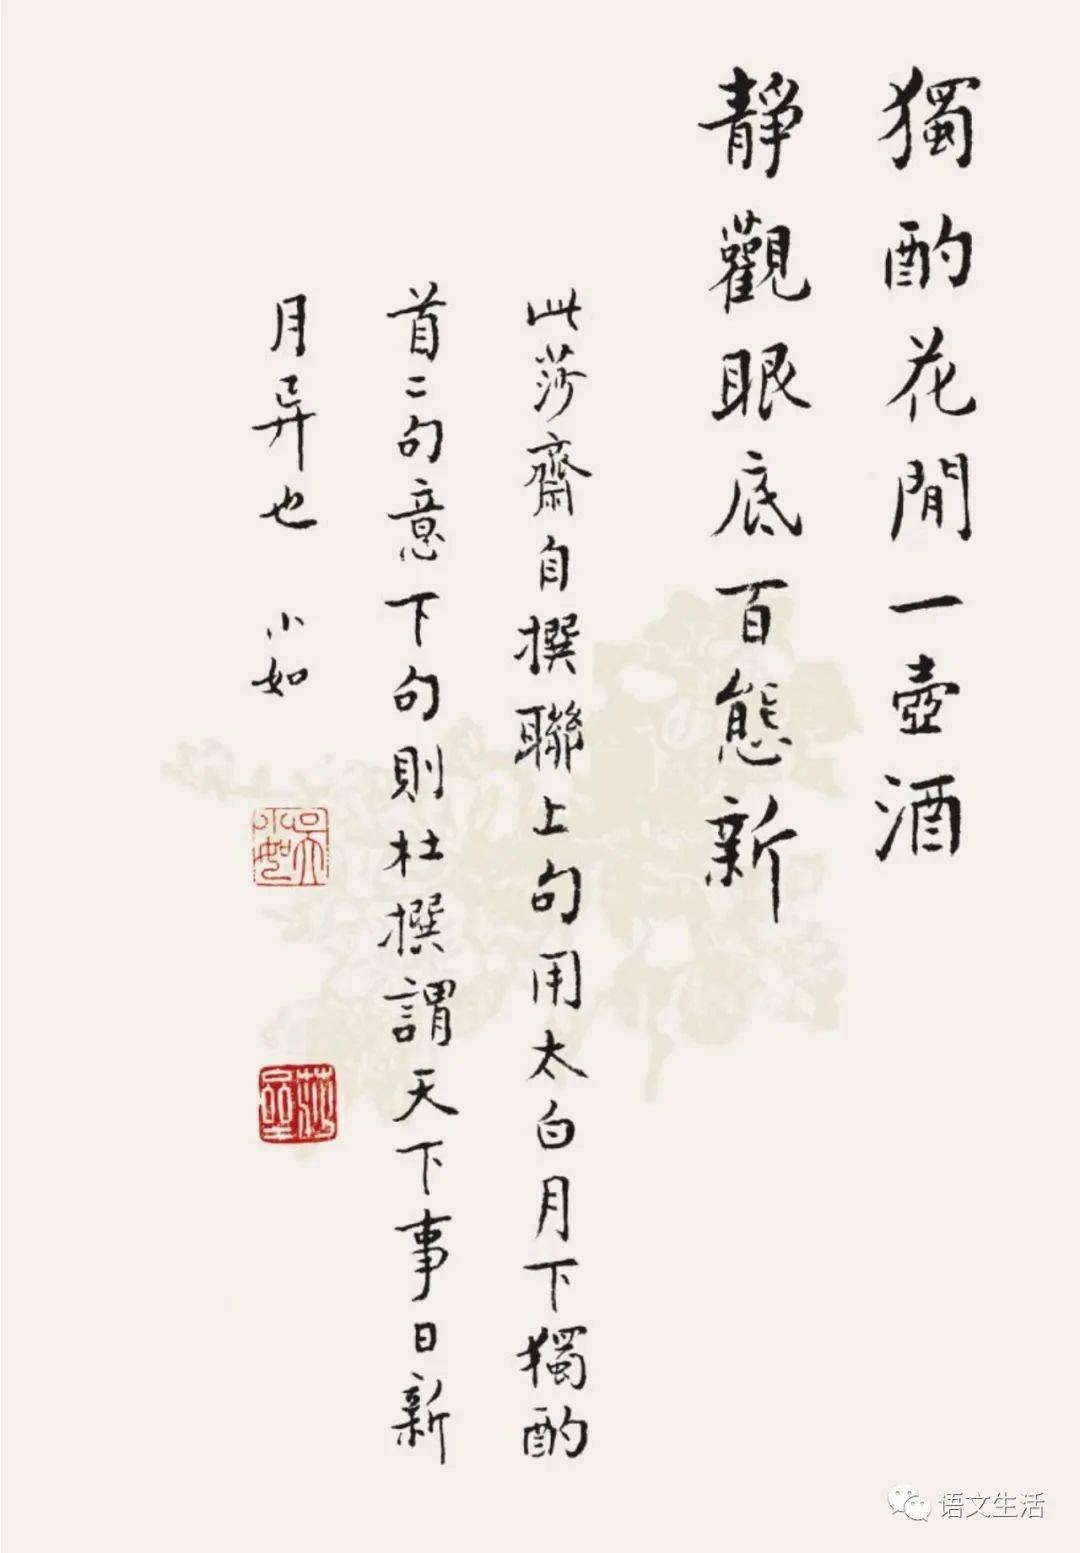 獨酌花間一壺酒
靜觀眼底百態新
此莎齋自撰聯上句用太白月下獨酌
首二句意下句則杜撰謂天下事日新
月异也 小如
吳小如
莎齋
语文生活